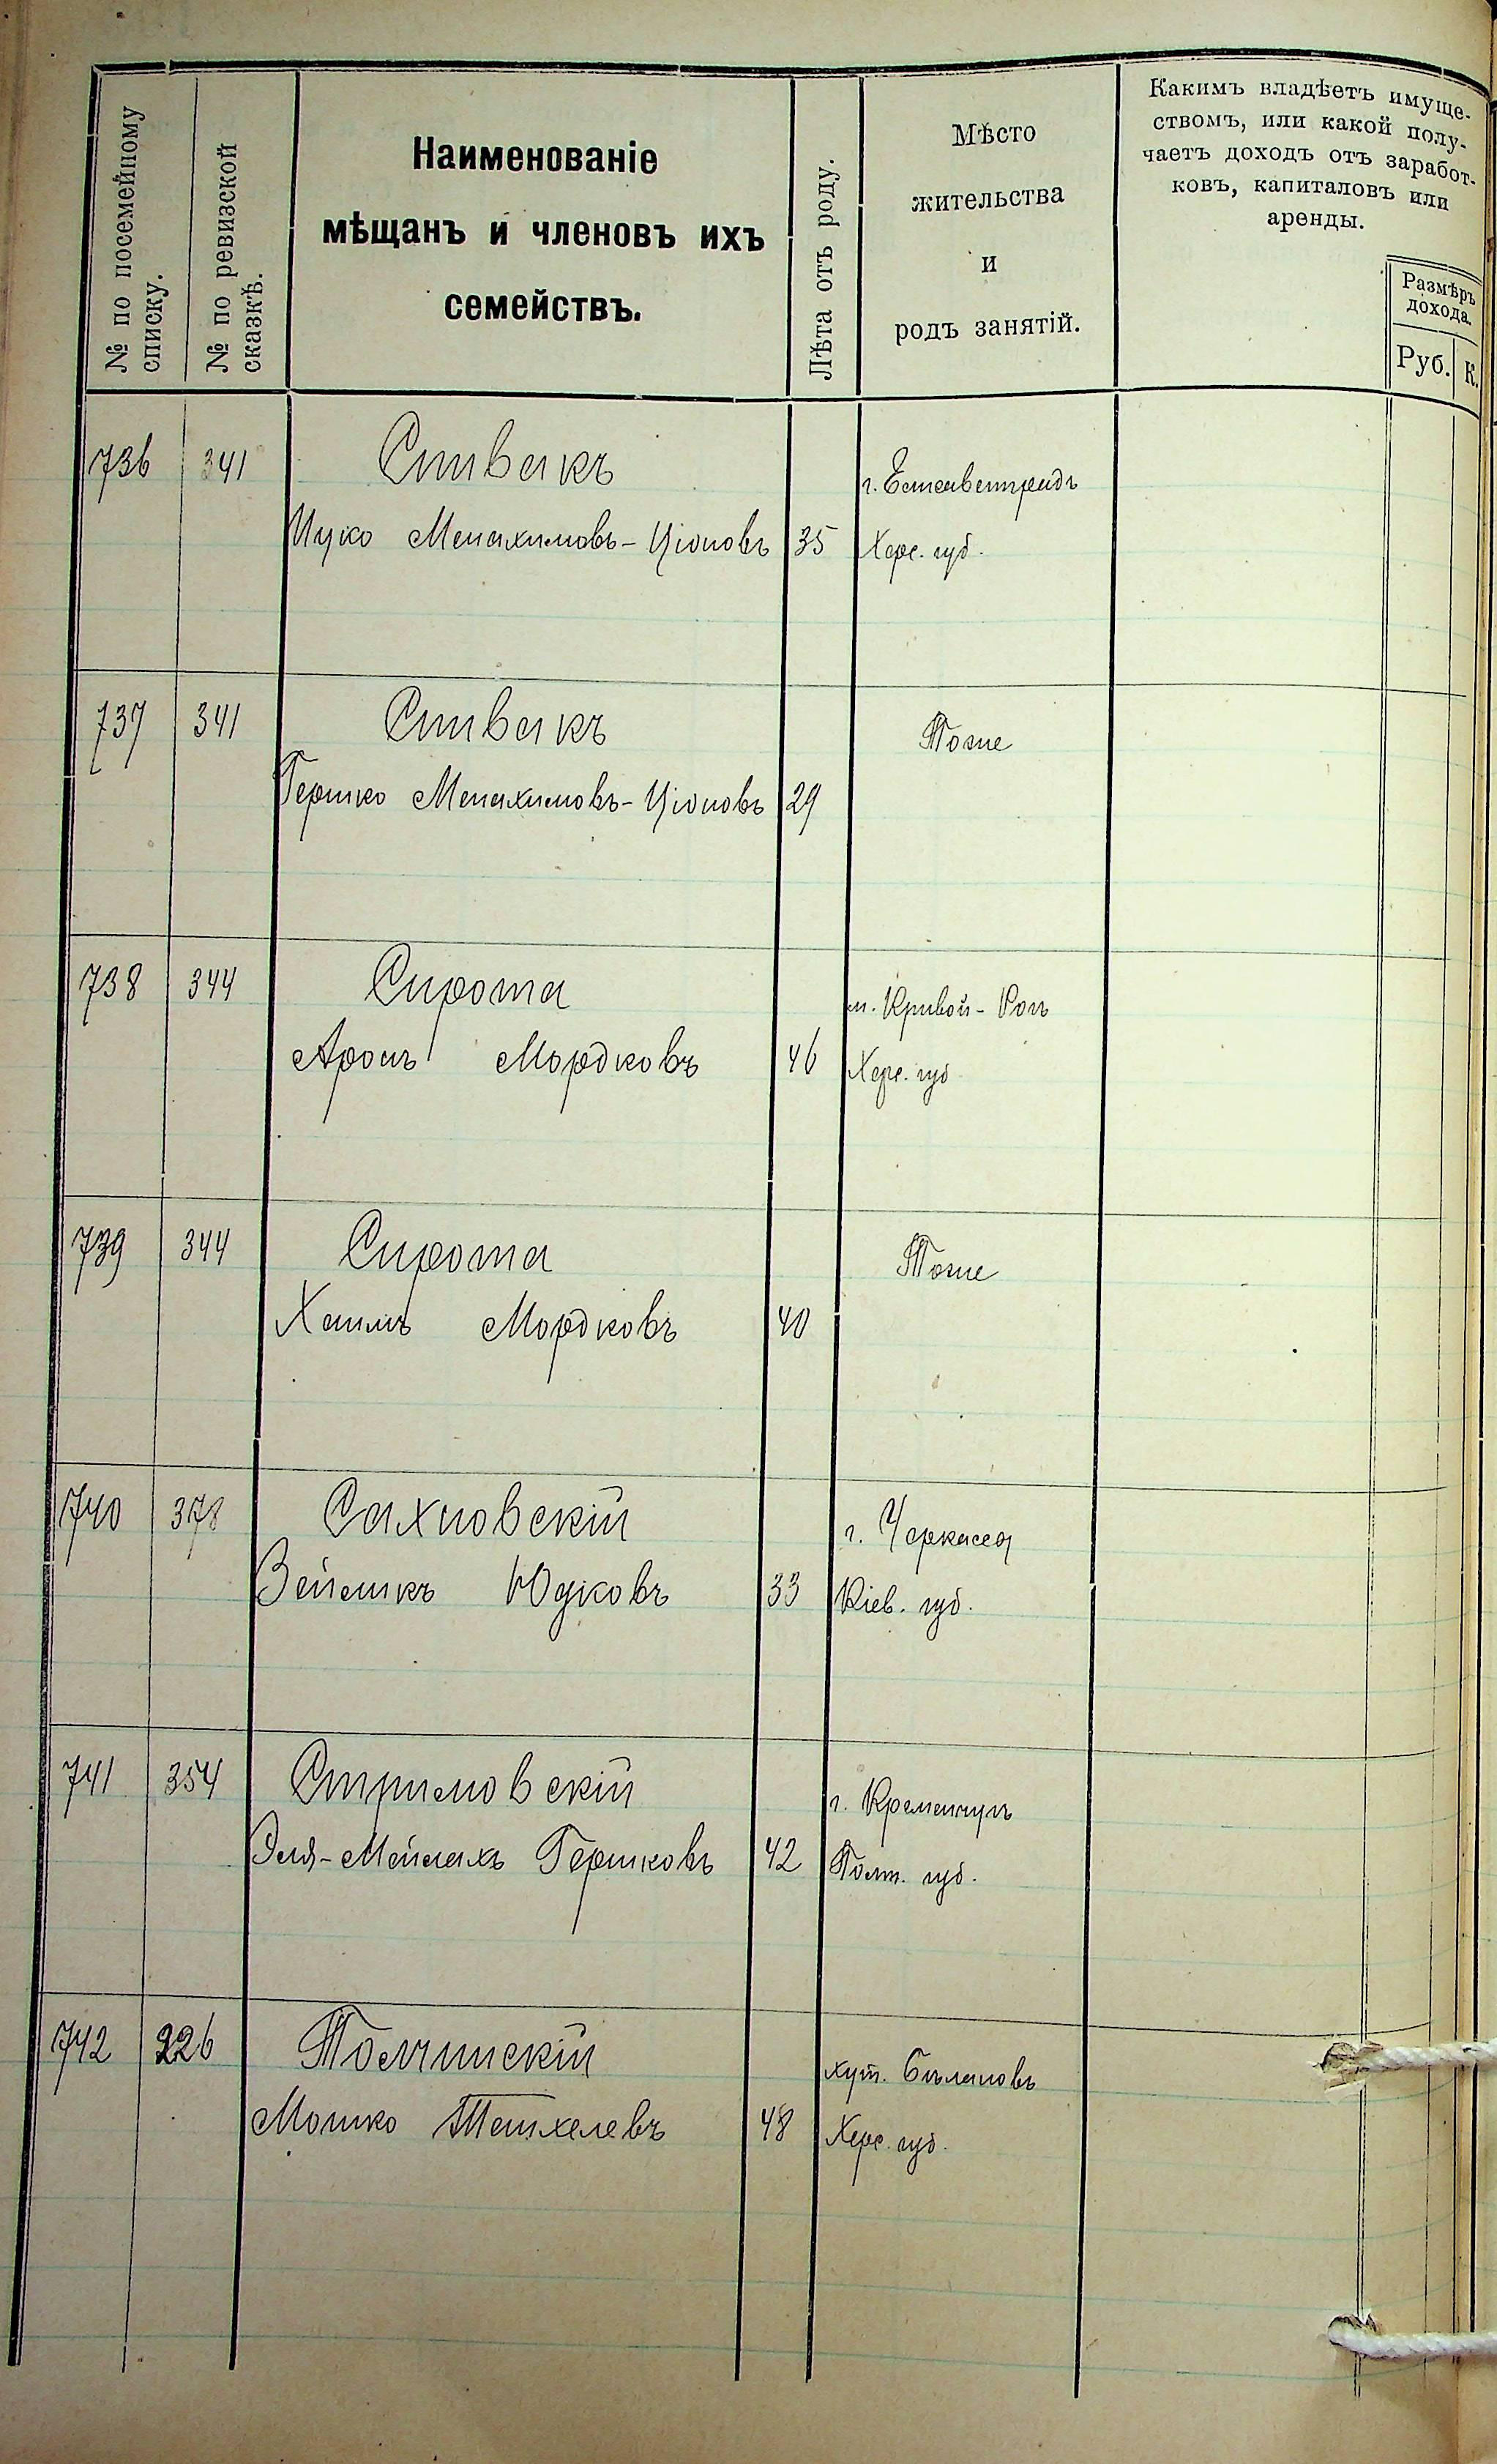 № по посемейному
списку.
№ по ревизской
сказкѣ.
Наименованіе
мѣщанъ и членовъ ихъ
семействъ.
Лѣта отъ роду.
Мѣсто
жительства
и
родъ занятій.
Какимъ владѣетъ имуще-
ствомъ, или какой полу-
чаетъ доходъ отъ заработ-
ковъ, капиталовъ или
аренды.
Размѣръ
дохода.
Руб. К.
736 341 Спивакъ
г. Елисаветградъ
Ицко Менахимовъ-Ціоновъ 35 Херс. губ.
737 341 Спивакъ Тоже
Гершко Менахимовъ-Ціоновъ 29
738 344 Сирота м. Кривой-Рогъ
Аронъ Мордковъ 46 Херс. губ
739 344 Сирота Тоже
Хаимъ Мордковъ 40
740 378 Сахновскій г. Черкассы
Юдковъ 33 Кіев. губ.
741 354 Стриловскій г. Кременчугъ
Эля-Мейлахъ Гершковъ 42 Полт. губ.
742 226 Толчинскій хут.
Мошко 48 Херс. губ.